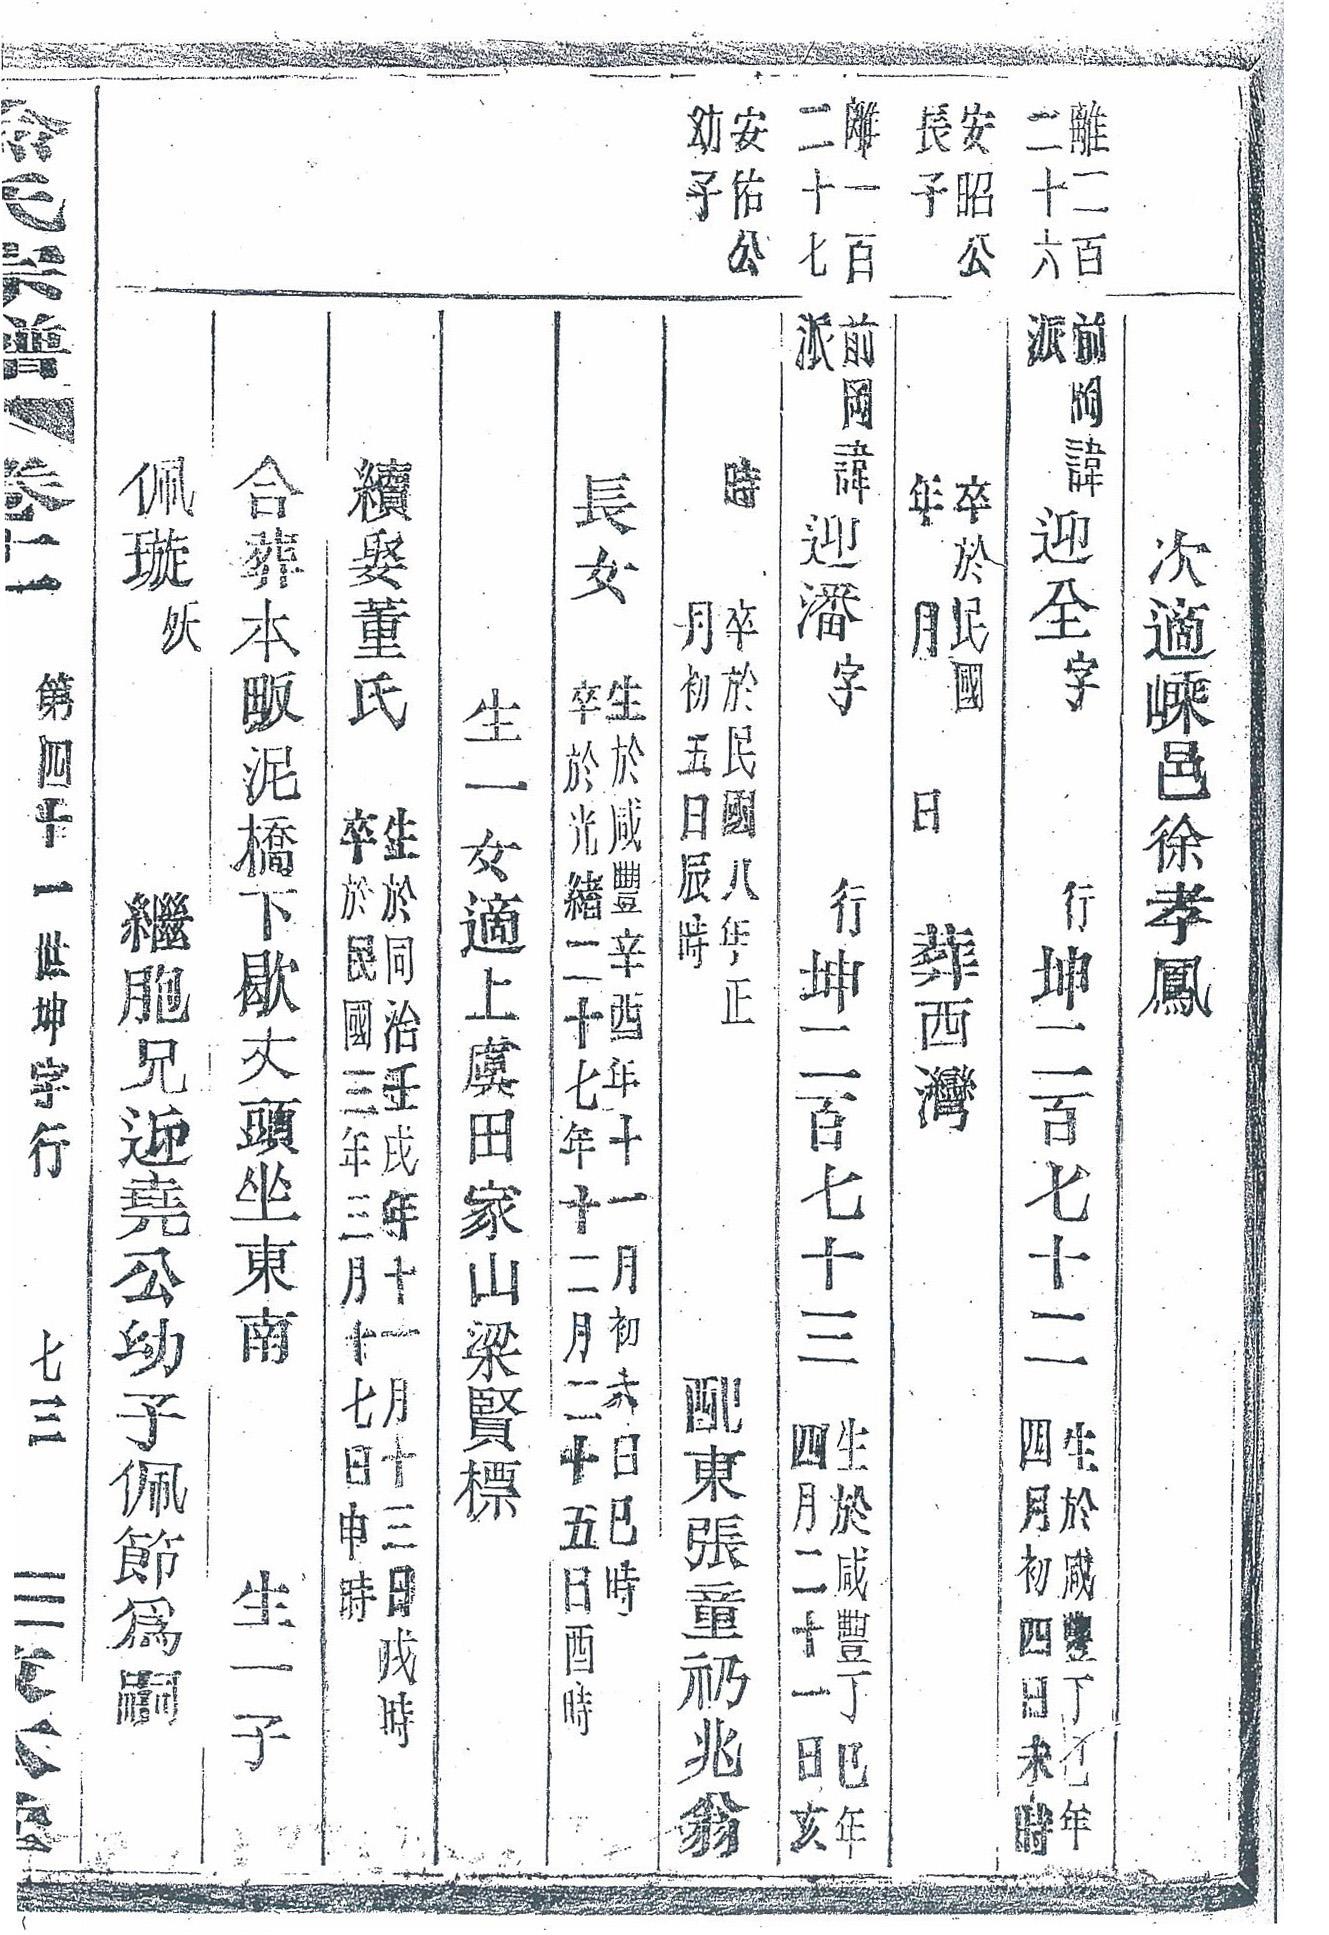 次適嵊邑徐孝鳳
離一百
二十六
前岡諱
派
迎全字
行坤二百七十二
生於咸豐丁巳年
四月初四日未時
安昭公
長子
卒於民國
年月日
葬西灣
離一百
二十七
前岡諱
派
迎潘字
行坤二百七十三
生於咸豐丁巳年
四月二十一日亥
安佑公
幼子
時
卒於民國八年正
月初五日辰時
配東張童礽兆翁
長女
生於咸豐辛酉年十一月初 日巳時
卒於光緒二十七年十二月二十五日酉時
生一女適上虞田家山梁賢標
續娶董氏
生於同治壬戌年十一月十三日戌時
卒於民國三年三月十七日申時
合葬本畈泥橋下歇丈頭坐東南
生一子
佩璇
殀
繼胞兄迎堯公幼子佩節爲嗣
氏宗譜
卷十一
第四十一世坤字行
七三
三